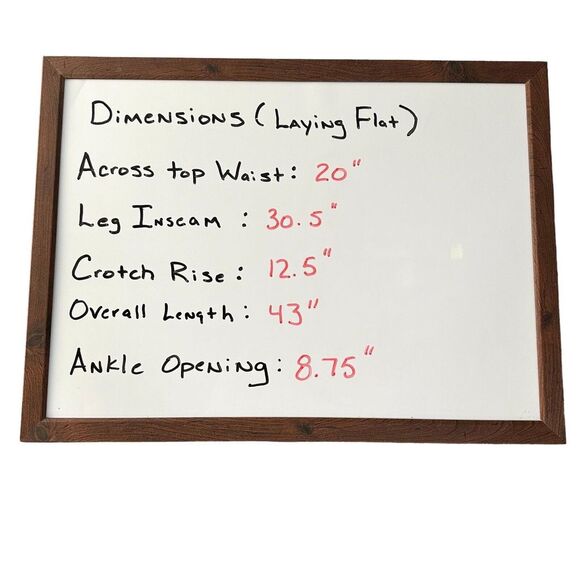 Dimensions (Laying Flat)
Across top Waist: 20"
Leg Inseam : 30.5"
Crotch Rise: 12.5"
Overall Length: 43"
Ankle Opening: 8.75"